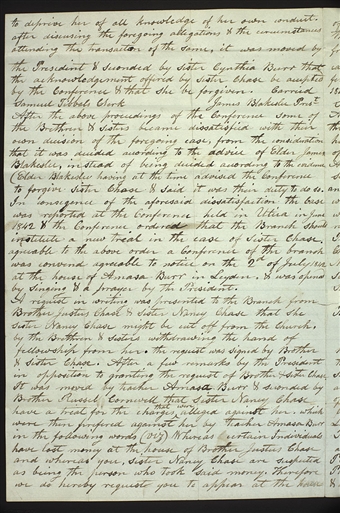 to deprive her of all knowledge of her own conduct.
after discussing the foregoing allegations & the circumstances
attending the transaction of the same, it was moved by
the President & Seconded by Sister Cynthia Burr that
the acknowledgement offered by Sister Chase be accepted
by the Conference & that She be forgiven. Carried
Samuel Clerk James Blakeslee Prest.
After the above proceedings of the Conference some of
the Brethren & Sisters became dissatisfied with their
own decision of the foregoing case, from the consideration
that it was decided according to the advice of Elder James
Blakeslee instead of being decided according to the evidence
(Elder Blakeslee having at the time advised the Conference
to forgive Sister Chase & Said it was their duty to do so.
In consequence of the aforesaid dissatisfaction the case
was reported at the Conference held in Utica in June
1842 & the Conference ordered that the Branch Should
institute a new treal in the case of Sister Chase,
agreeable to the above order a Conference of the branch
was convened agreeable to notice on the 2nd of July 1842
at the house of Amasa Burr in Leyden. & was opened
by Singing & a prayer by the President.
A request in writing was presented to the Branch from
Brother Justus Chase & Sister Nancy Chase that She
Sister Nancy Chase might be cut off from the Church.
by the Brethren & Sisters withdrawing the hand of
fellowship from her. the request was signed by Brother
& Sister Chase. After a few remarks by the President
in opposition to granting the request of Brother & Sister Chase
It was moved by teacher Amasa Burr & seconded by
Brother Russel Cornwell that Sister Nancy Chase
have a treal for the charge that was alleged against her. which
were then prefered against her by teacher Amasa Burr
in the following words (viz) Whereas certain Individuals
have lost money at the house of Brother Justus Chase
and whereas you, Sister Nancy Chase are suspected
as being the person who took Said money. Therefore
we do hereby request you to appear at the house